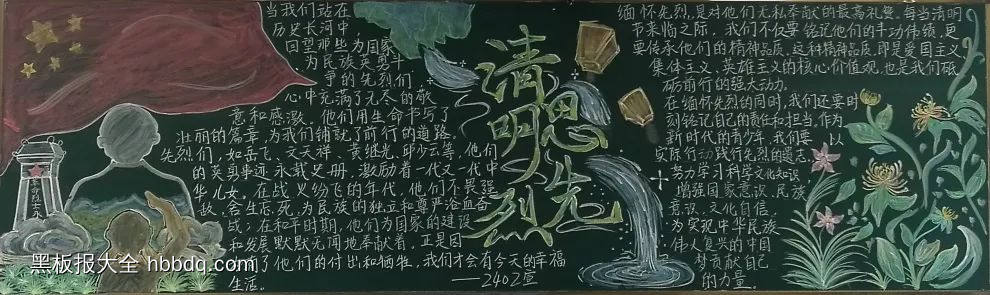 当我们站在
历史长河中,
回望那些为国家
为民族英勇斗
争的先烈们
心中充满了无尽的敬
意和感激。他们用生命书写了
壮丽的篇章,为我们铺就了前行的道路。
先烈们,如岳飞、文天祥、黄继光、邱少云等,他们
的英勇事迹永载史册,激励着一代又一代中
华儿女。在战火纷飞的年代,他们不畏强
敌,舍生忘死,为民族的独立和尊严浴血奋
战;在和平时期,他们为国家的建设
和发展默默无闻地奉献着,正是因
了他们的付出和牺牲,我们才会有今天的幸福
生活。
——2402宣
清明思先烈
缅怀先烈,是对他们无私奉献的最高礼赞。每当清明
节来临之际,我们不仅要铭记他们的丰功伟绩,更
要传承他们的精神品质。这种精神品质,即是爱国主义
集体主义、英雄主义的核心价值观,也是我们砥
砺前行的强大动力。
在缅怀先烈的同时,我们还要时
刻铭记自己的责任和担当。作为
新时代的青少年,我们要以
实际行动践行先烈的遗志,
努力学习科学文化知识
增强国家意识、民族
意识、文化自信,
为实现中华民族
伟大复兴的中国
梦贡献自己
的力量。
黑板报大全 hbbdq.com